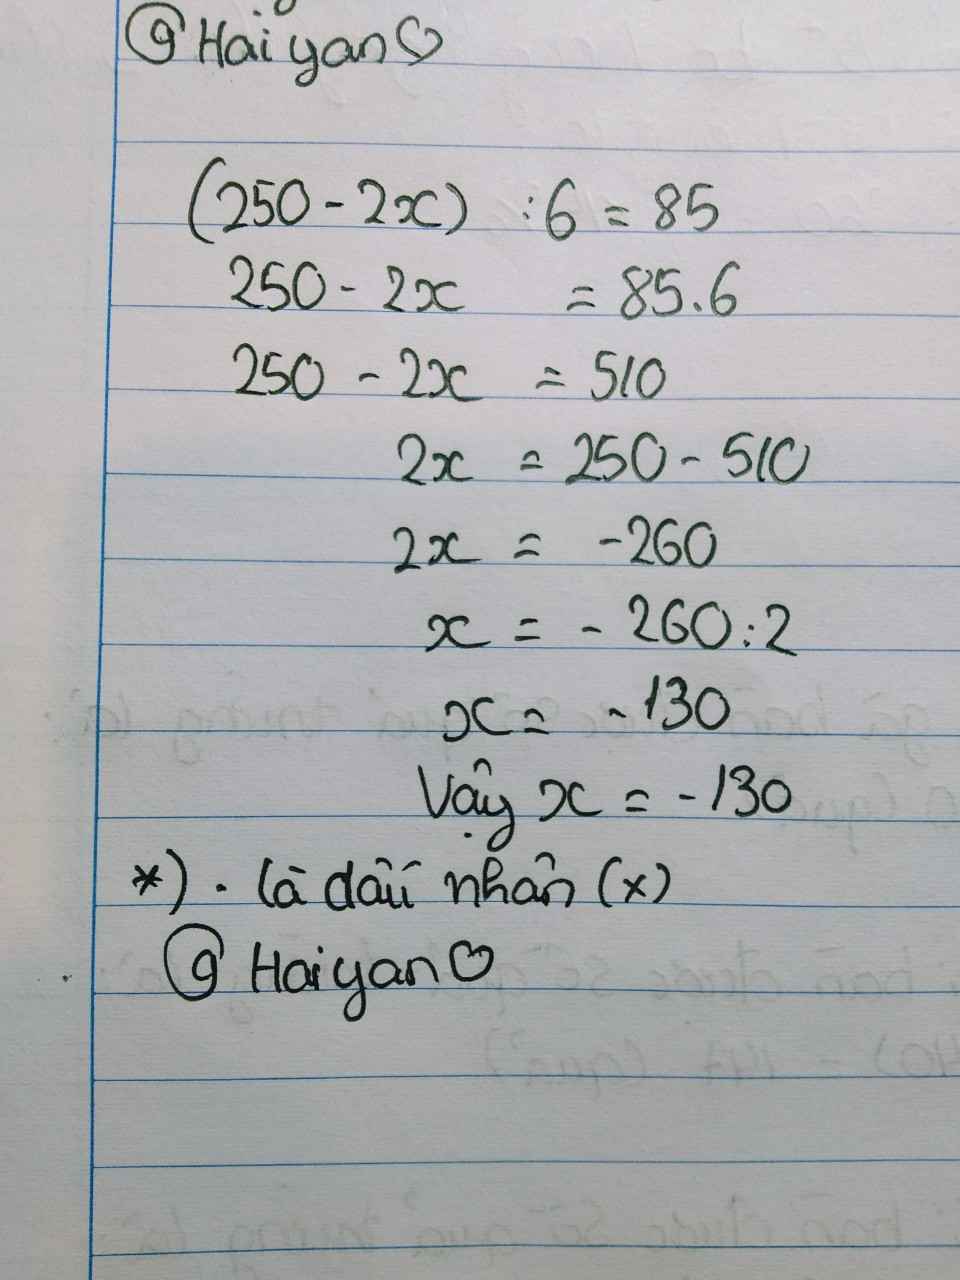 @ Haiyan♡
(250 - 2x) : 6 = 85
250 - 2x = 85.6
250 - 2x = 510
2x = 250 - 510
2x = -260
x = - 260 : 2
x = -130
Vậy x = -130
*) . là dấu nhân (x)
@ Haiyan♡